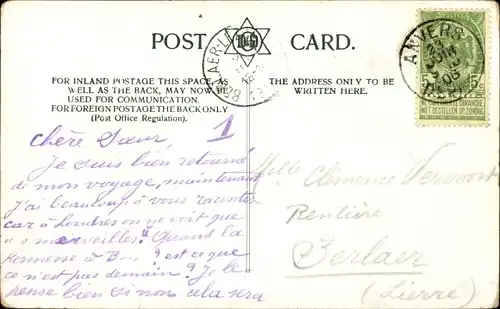 POST CARD.
FOR INLAND POSTAGE THIS SPACE, AS
WELL AS THE BACK, MAY NOW BE
USED FOR COMMUNICATION.
FOR FOREIGN POSTAGE THE BACK ONLY
(Post Office Regulation).
THE ADDRESS ONLY TO BE
WRITTEN HERE.
ANVERS
5 C 5
NE PAS LIVRER LE DIMANCHE
NIET BESTELLEN OP ZONDAG
1
Chère Sœur,
Je suis bien retourné
de mon voyage, maintenant
j'ai beaucoup à vous raconter
car à Londres on ne voit que
" " merveilles". Quand la
Kermesse à B... ? est ce que
ce n'est pas demain? Je le
pense bien si non cela sera
Melle Clémence Vervoort
Rentière
Berlaer
(Lierre)